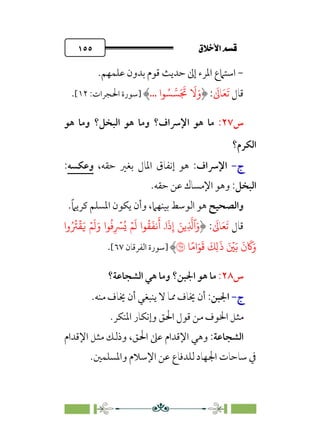 قسم الأخلاق
١٥٥
- استماع المرء إلى حديث قوم بدون علمهم.
قال تَعَالَىٰ: ﴿وَلَا تَجَسَّسُوا ...﴾ [سورة الحجرات: ١٢].
س٢٧: ما هو الإسراف؟ وما هو البخل؟ وما هو
الكرم؟
ج- الإسراف: هو إنفاق المال بغير حقه، وعكسه:
البخل: وهو الإمساك عن حقه.
والصحيح هو الوسط بينهما، وأن يكون المسلم كريماً.
قال تَعَالَىٰ: ﴿وَٱلَّذِينَ إِذَآ أَنفَقُوا۟ لَمْ يُسْرِفُوا۟ وَلَمْ يَقْتُرُوا۟
وَكَانَ بَيْنَ ذَٰلِكَ قَوَامًا ٦٧﴾ [سورة الفرقان ٦٧].
س٢٨: ما هو الجبن؟ وما هي الشجاعة؟
ج- الجبن: أن يخاف مما لا ينبغي أن يخاف منه.
مثل الخوف من قول الحق وإنكار المنكر.
الشجاعة: وهي الإقدام على الحق، وذلك مثل الإقدام
في ساحات الجهاد للدفاع عن الإسلام والمسلمين.